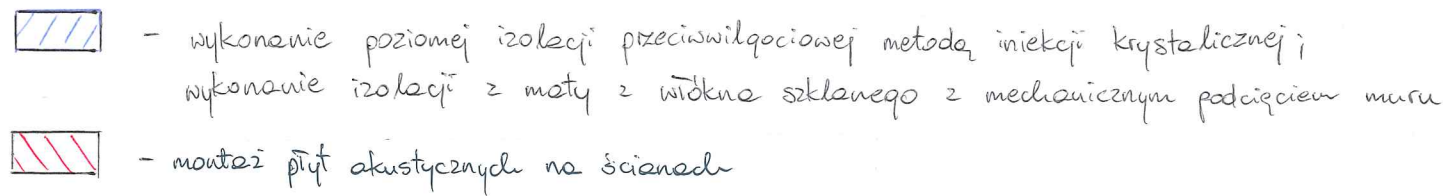 - wykonanie poziomej izolacji przeciwwilgociowej metodą iniekcji krystalicznej;
wykonanie izolacji z maty z włókna szklanego z mechanicznym podcięciem muru
- montaż płyt akustycznych na ścianach